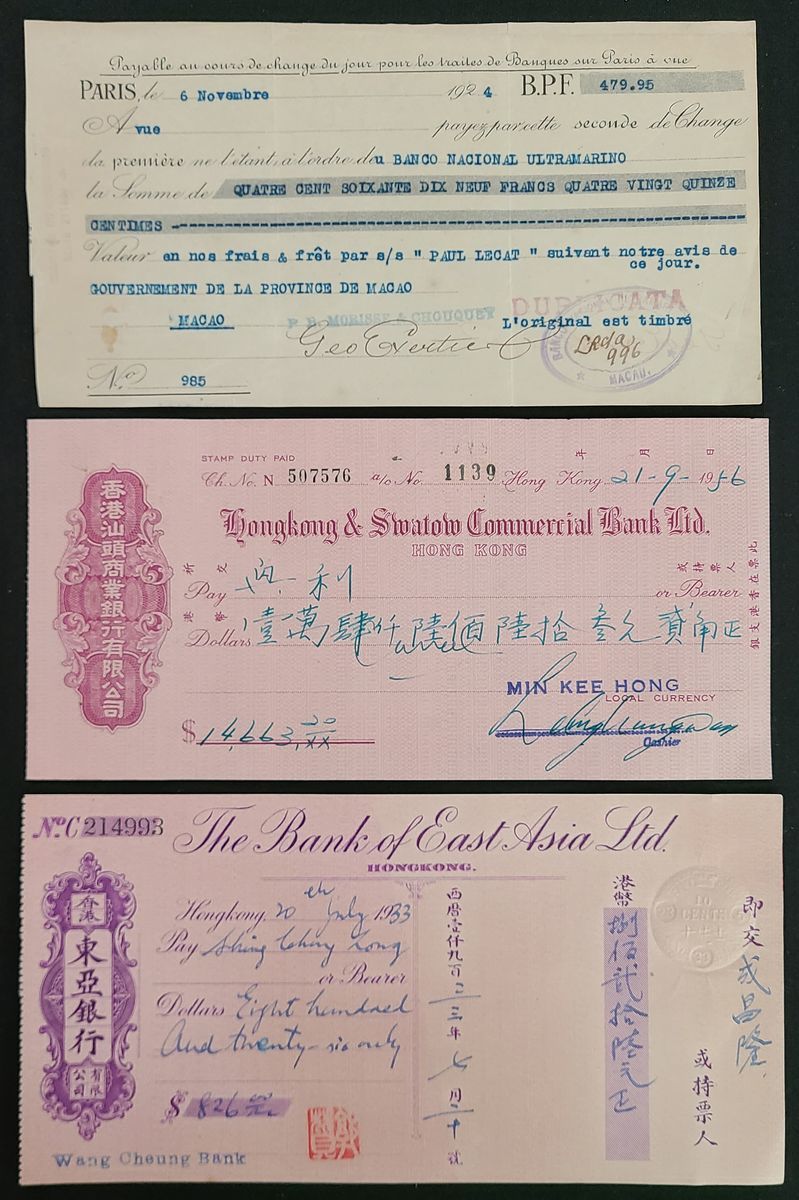 Payable au cours de change du jour pour les traites de Banques sur Paris à vue
PARIS, le 6 Novembre 1924 B.P.F. 479.95
A vue payez par cette seconde de Change
la première ne l'étant, à l'ordre de u BANCO NACIONAL ULTRAMARINO
la Somme de QUATRE CENT SOIXANTE DIX NEUF FRANCS QUATRE VINGT QUINZE
CENTIMES
Valeur en nos frais & frêt par s/s " PAUL LECAT " suivant notre avis de
ce jour.
GOUVERNEMENT DE LA PROVINCE DE MACAO
MACAO
P. B. MORISSE & CHOUQUET
DUPLICATA
L'original est timbré
996
MACAU.
No 985
STAMP DUTY PAID
年 月 日
Ch. No. N 507576 a/c No. 1139 Hong Kong, 21-9-1956
Hongkong & Swatow Commercial Bank Ltd.
HONG KONG
香港汕頭商業銀行有限公司
祈交
Pay 興利 or Bearer
或持票人
港幣
Dollars 壹萬肆仟陸佰陸拾叁元貳角正
此票在香港支銀
MIN KEE HONG
LOCAL CURRENCY
$14,663.20/xx
Cashier
No. C 214993
The Bank of East Asia Ltd.
HONGKONG.
香港
東亞銀行
有限公司
Hongkong, 20th July 1933
Pay Shing Chong Loong
or Bearer
Dollars Eight hundred
And twenty-six only
$ 826
Wang Cheung Bank
西曆壹仟九百三三年七月二十號
港幣捌佰貳拾陸元正
10 CENTS
即交成昌隆
或持票人